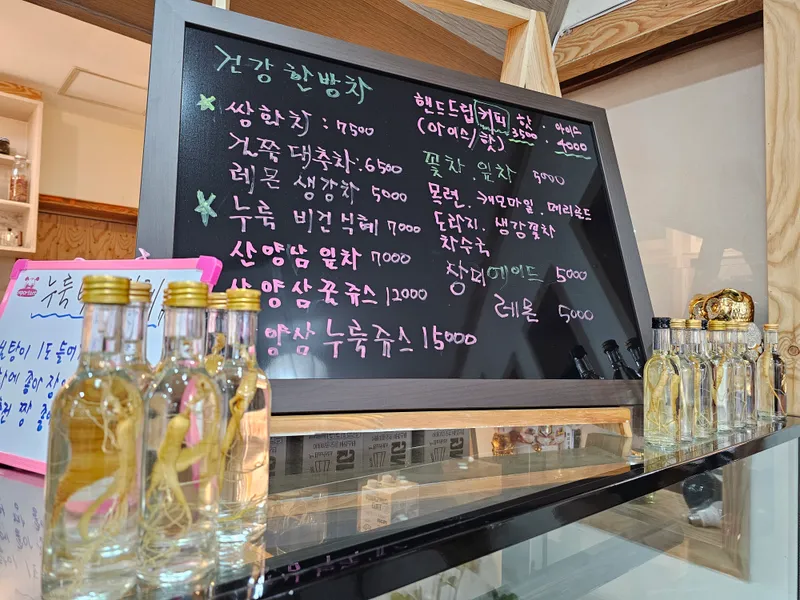 건강 한방차
쌍화차 : 7500
대추차 : 6500
레몬 생강차 5000
누룩 비건 식혜 7000
산양삼 잎차 7000
산양삼 꽃쥬스 12000
양삼 누룩쥬스 15000
핸드드립 커피 핫 . 아이스
(아이스/핫) 3500 4000
꽃차 . 잎차 5000
목련 . 캐모마일 . 메리골드
도라지 . 생강꽃차
차수국
장미에이드 5000
레몬 5000
누룩